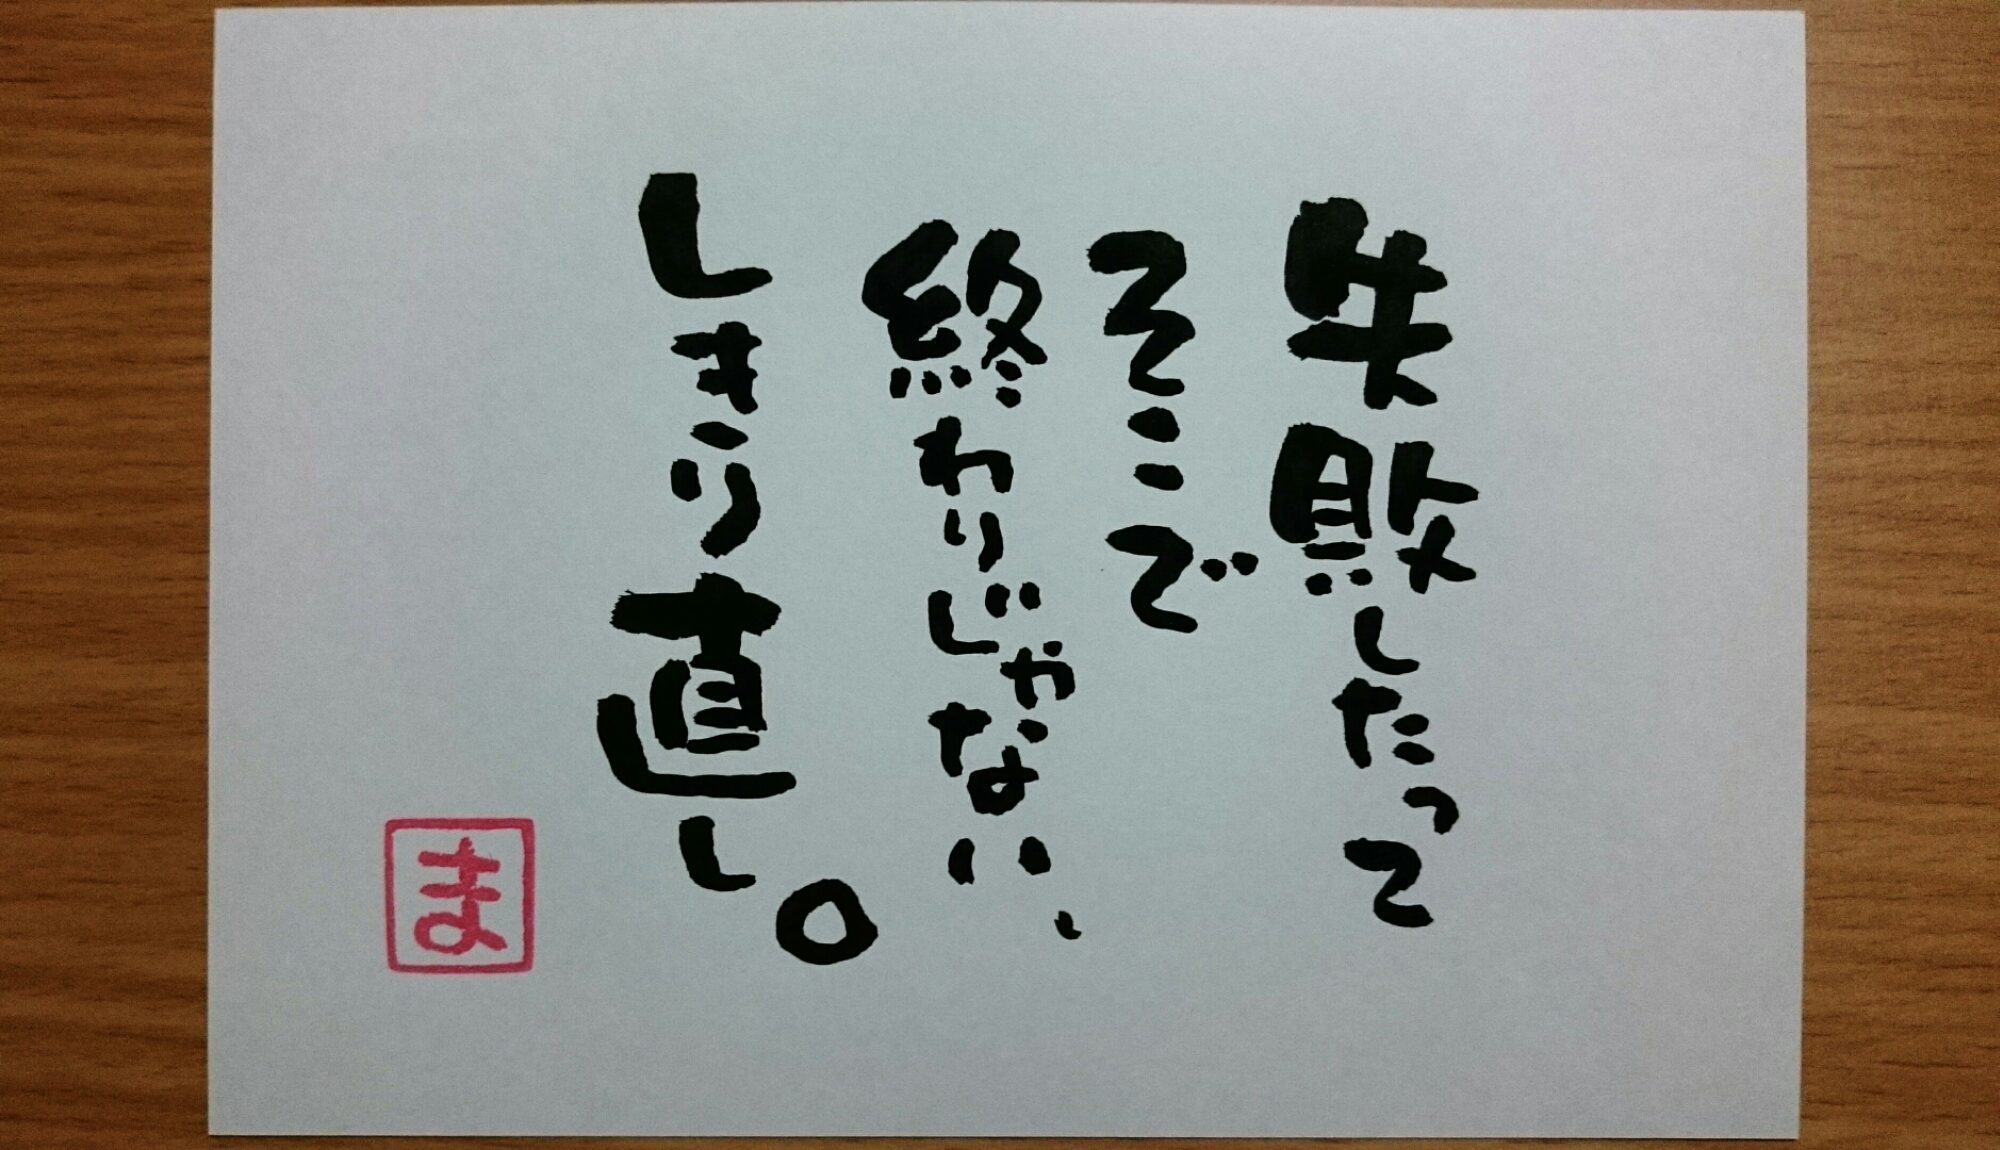 失敗したって
そこで
終わりじゃない、
しきり直し。
ま